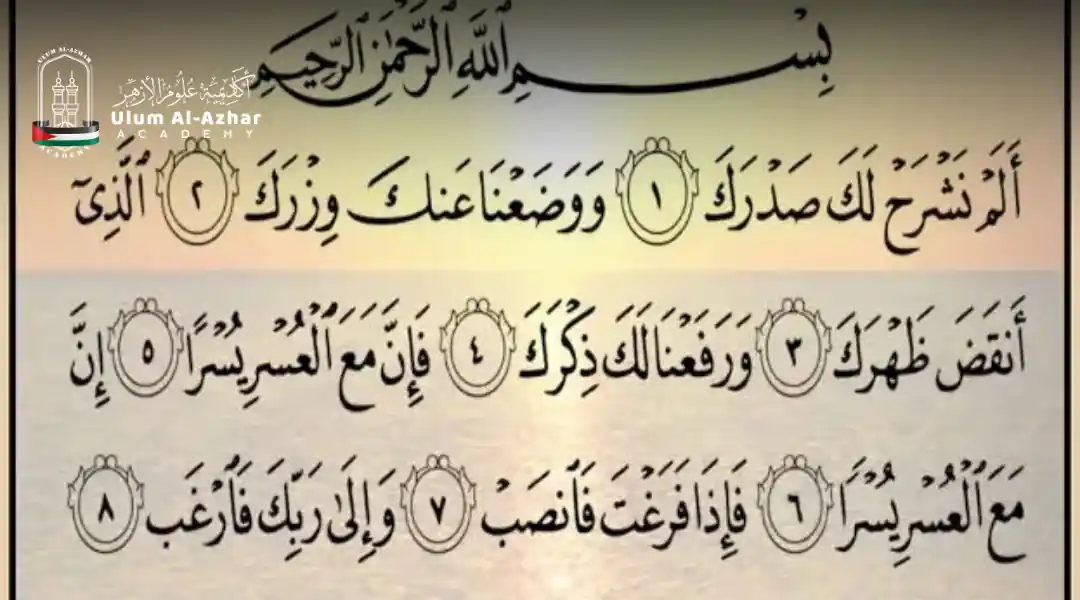 بِسْمِ ٱللَّهِ ٱلرَّحْمَٰنِ ٱلرَّحِيمِ
ULUM AL-AZHAR
أكاديمية علوم الأزهر
Ulum Al-Azhar
ACADEMY
ACADEMY
أَلَمْ نَشْرَحْ لَكَ صَدْرَكَ ١ وَوَضَعْنَا عَنكَ وِزْرَكَ ٢ ٱلَّذِىٓ
أَنقَضَ ظَهْرَكَ ٣ وَرَفَعْنَا لَكَ ذِكْرَكَ ٤ فَإِنَّ مَعَ ٱلْعُسْرِ يُسْرًا ٥ إِنَّ
مَعَ ٱلْعُسْرِ يُسْرًا ٦ فَإِذَا فَرَغْتَ فَٱنصَبْ ٧ وَإِلَىٰ رَبِّكَ فَٱرْغَب ٨